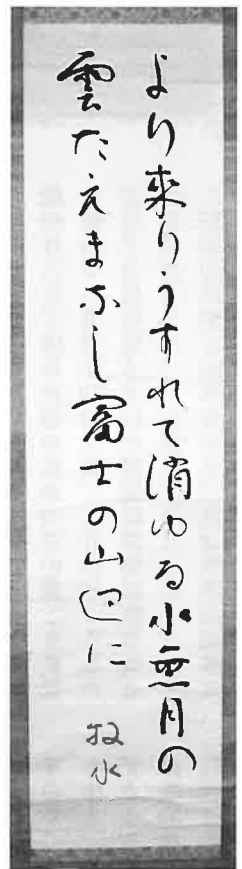 より来りうすれて消ゆる水無月の
雲たえまなし富士の山辺に
牧水